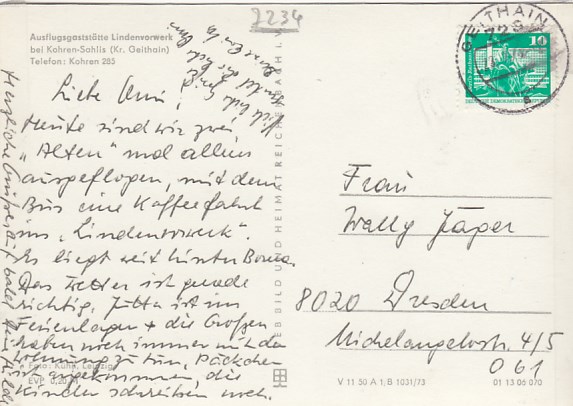 2234
Ausflugsgaststätte Lindenvorwerk
bei Kohren-Sahlis (Kr. Geithain)
Telefon: Kohren 285
GEITHAIN
729
10
DEUTSCHE DEMOKRATISCHE REPUBLIK
Liebe Omi!
Heute sind wir zwei
„Alten" mal allein
ausgeflogen, mit dem
Bus eine Kaffeefahrt
ins „Lindenvorwerk".
Es liegt weit hinter Borna.
Das Wetter ist gerade
richtig, Jutta ist im
Ferienlager + die Großen
haben noch immer mit der
Wohnung zu tun, Päckchen
ist angekommen, die
Kinder schreiben noch.
Herzliche
Foto: Kühn, Leipzig
EVP 0,20 M
BILD UND HEIMAT REICHENBACH I. V.
Frau
Welly Jäger
8020 Dresden
Michelangelostr. 4/5
061
V 11 50 A 1; B 1031/73
01 13 06 070